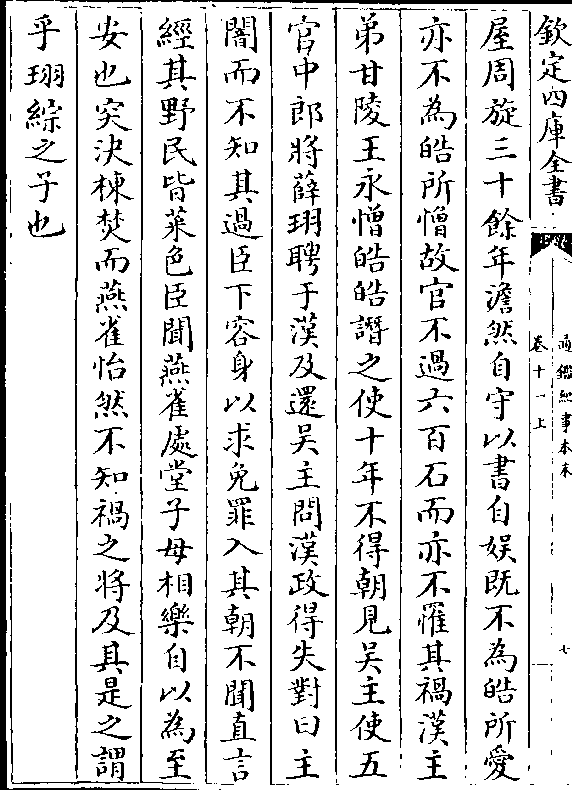 欽定四庫全書
通鑑紀事本末
卷十一上
七
屋周旋三十餘年澹然自守以書自娱既不為皓所愛
亦不為皓所憎故官不過六百石而亦不罹其禍漢主
弟甘陵王永憎皓皓譖之使十年不得朝見吴主使五
官中郎將薛珝聘于漢及還吴主問漢政得失對曰主
闇而不知其過臣下容身以求免罪入其朝不聞直言
經其野民皆菜色臣聞燕雀處堂子母相樂自以為至
安也突決棟焚而燕雀怡然不知禍之將及其是之謂
乎珝綜之子也